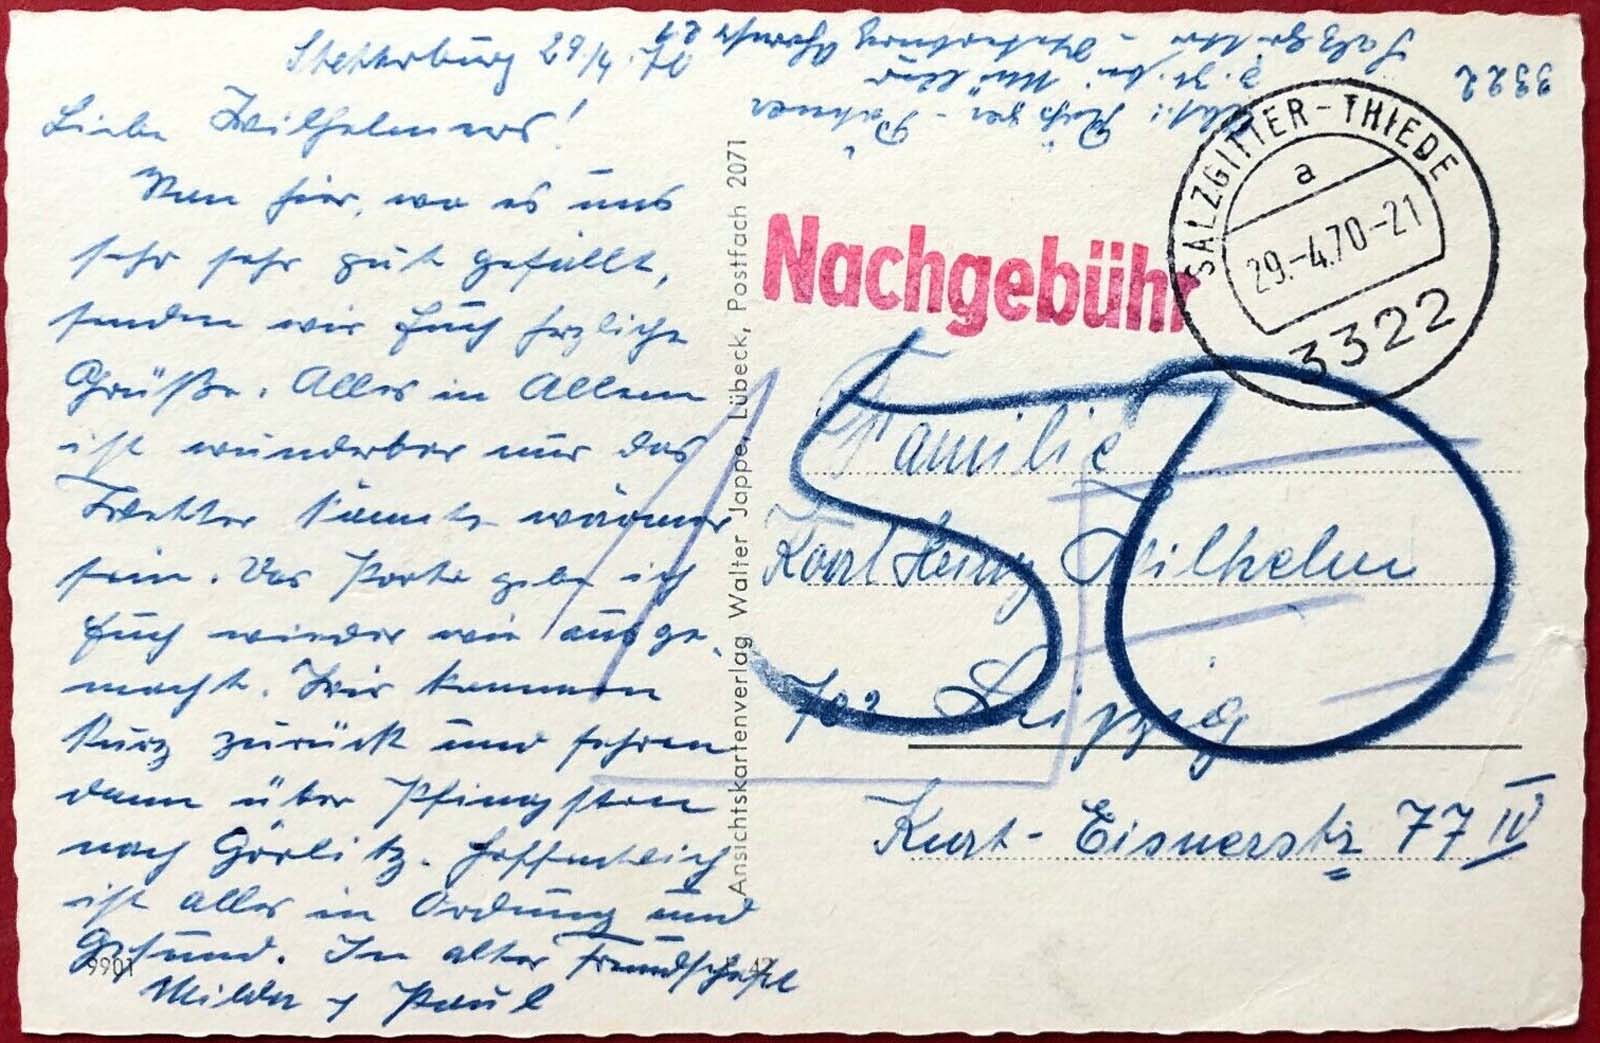 Stetterburg 29/4.70
Liebe Wilhelmers!
Nun hier, wo es uns
sehr sehr gut gefällt,
senden wir Euch herzliche
Grüße. Alles in Allem
ist wunderbar nur das
Wetter könnte wärmer
sein. Das Porto gebe ich
Euch wieder wie ausge-
macht. Wir kommen
kurz zurück und fahren
dann über Pfingsten
nach Görlitz. Hoffentlich
ist alles in Ordnung und
Gesund. In alter Freundschaft
Milda u Paul
9901
Ansichtskartenverlag Walter Jappe, Lübeck, Postfach 2071
Abs.:
z. Zt. bei Müller
3322 Salzgitter - 21
Nachgebühr
SALZGITTER-THIEDE
a
29.-4.70-21
3322
50
Familie
Karl Heinz Wilhelm
702 Leipzig
Kurt-Eisnerstr 77 IV